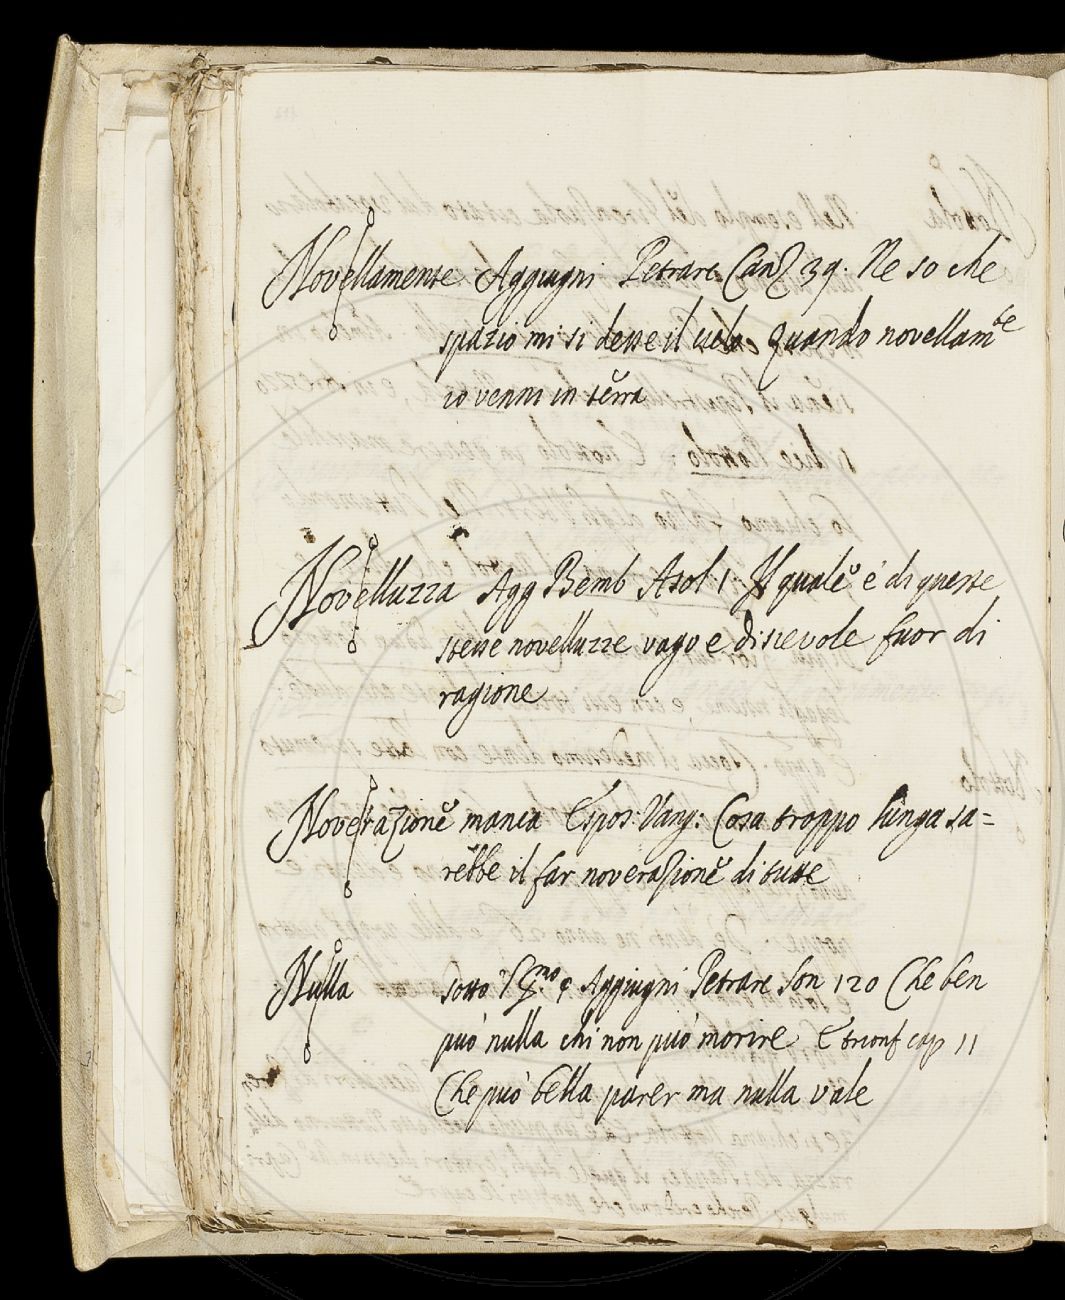 Novellamente Aggiugni Petrarc Canz 39. Ne so che
spazio mi si desse il cielo Quando novellam.te
io venni in terra
Novelluzza Agg Bemb Asol 1 Il quale è di queste
stesse novelluzze vago e disievole fuor di
ragione
Noverazione manca Espos. Vang: Cosa troppo lunga sa=
rebbe il far noverazione di tutte
Nulla sotto Aggiugni Petrarc Son 120 Che ben
può nulla chi non può morire E trionf cap 11
Che può bella parer ma nulla vale